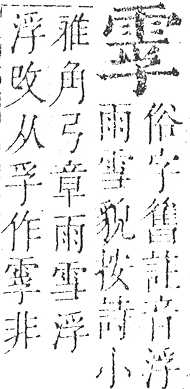 俗字舊註音浮
雨雪貌按詩小
雅角弓章雨雪浮
浮改从孚作非